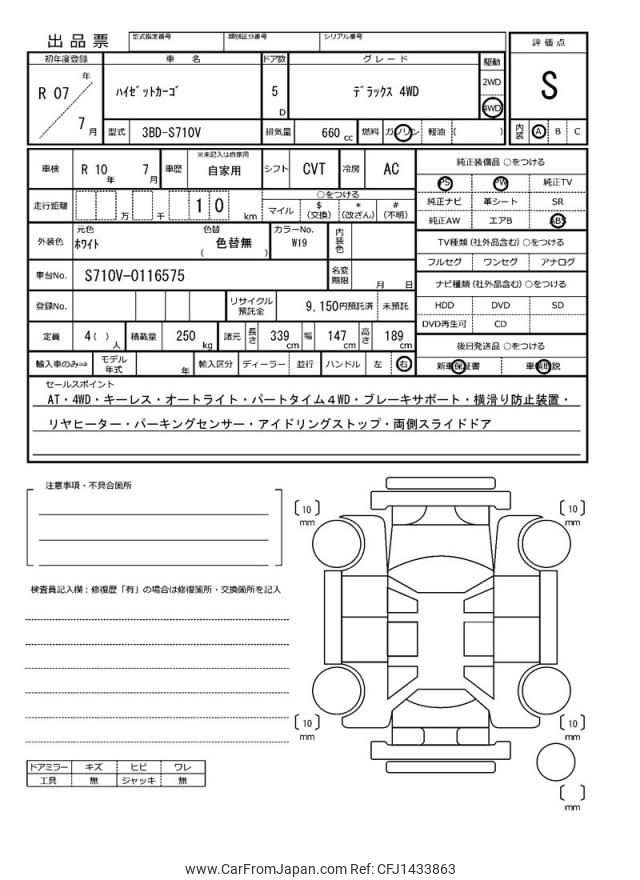 出品票 型式指定番号 類別区分番号 シリアル番号 評価点
初年度登録 車名 ドア数 グレード 駆動 S
R 07 年 7 月 ハイゼットカーゴ 5 D デラックス 4WD 2WD 4WD
型式 3BD-S710V 排気量 660 cc 燃料 ガソリン 軽油 ( ) 内装 A B C
車検 R 10 年 7 月 車歴 ※未記入は自家用 自家用 シフト CVT 冷房 AC 純正装備品 ○をつける
PS PW 純正TV
走行距離 万 千 1 0 km ○をつける マイル $ (交換) * (改ざん) # (不明) 純正ナビ 革シート SR
純正AW エアB ABS
外装色 元色 ホワイト 色替 色替無 ( ) カラーNo. W19 内装色 TV種類 (社外品含む) ○をつける
フルセグ ワンセグ アナログ
車台No. S710V-0116575 名変期限 月 日 ナビ種類 (社外品含む) ○をつける
登録No. リサイクル預託金 9,150円預託済 未預託 HDD DVD SD
DVD再生可 CD
定員 4( ) 人 積載量 250 kg 諸元 長さ 339 cm 幅 147 cm 高さ 189 cm 後日発送品 ○をつける
輸入車のみ⇒ モデル年式 年 輸入区分 ディーラー 並行 ハンドル 左 右 新車保証書 車輌取説
セールスポイント
AT・4WD・キーレス・オートライト・パートタイム4WD・ブレーキサポート・横滑り防止装置・
リヤヒーター・パーキングセンサー・アイドリングストップ・両側スライドドア
注意事項・不具合箇所
[ 10 ] mm [ 10 ] mm
検査員記入欄：修復歴「有」の場合は修復箇所・交換箇所を記入
[ 10 ] mm [ 10 ] mm
ドアミラー キズ ヒビ ワレ
工具 無 ジャッキ 無
[ ] mm
www.CarFromJapan.com Ref: CFJ1433863